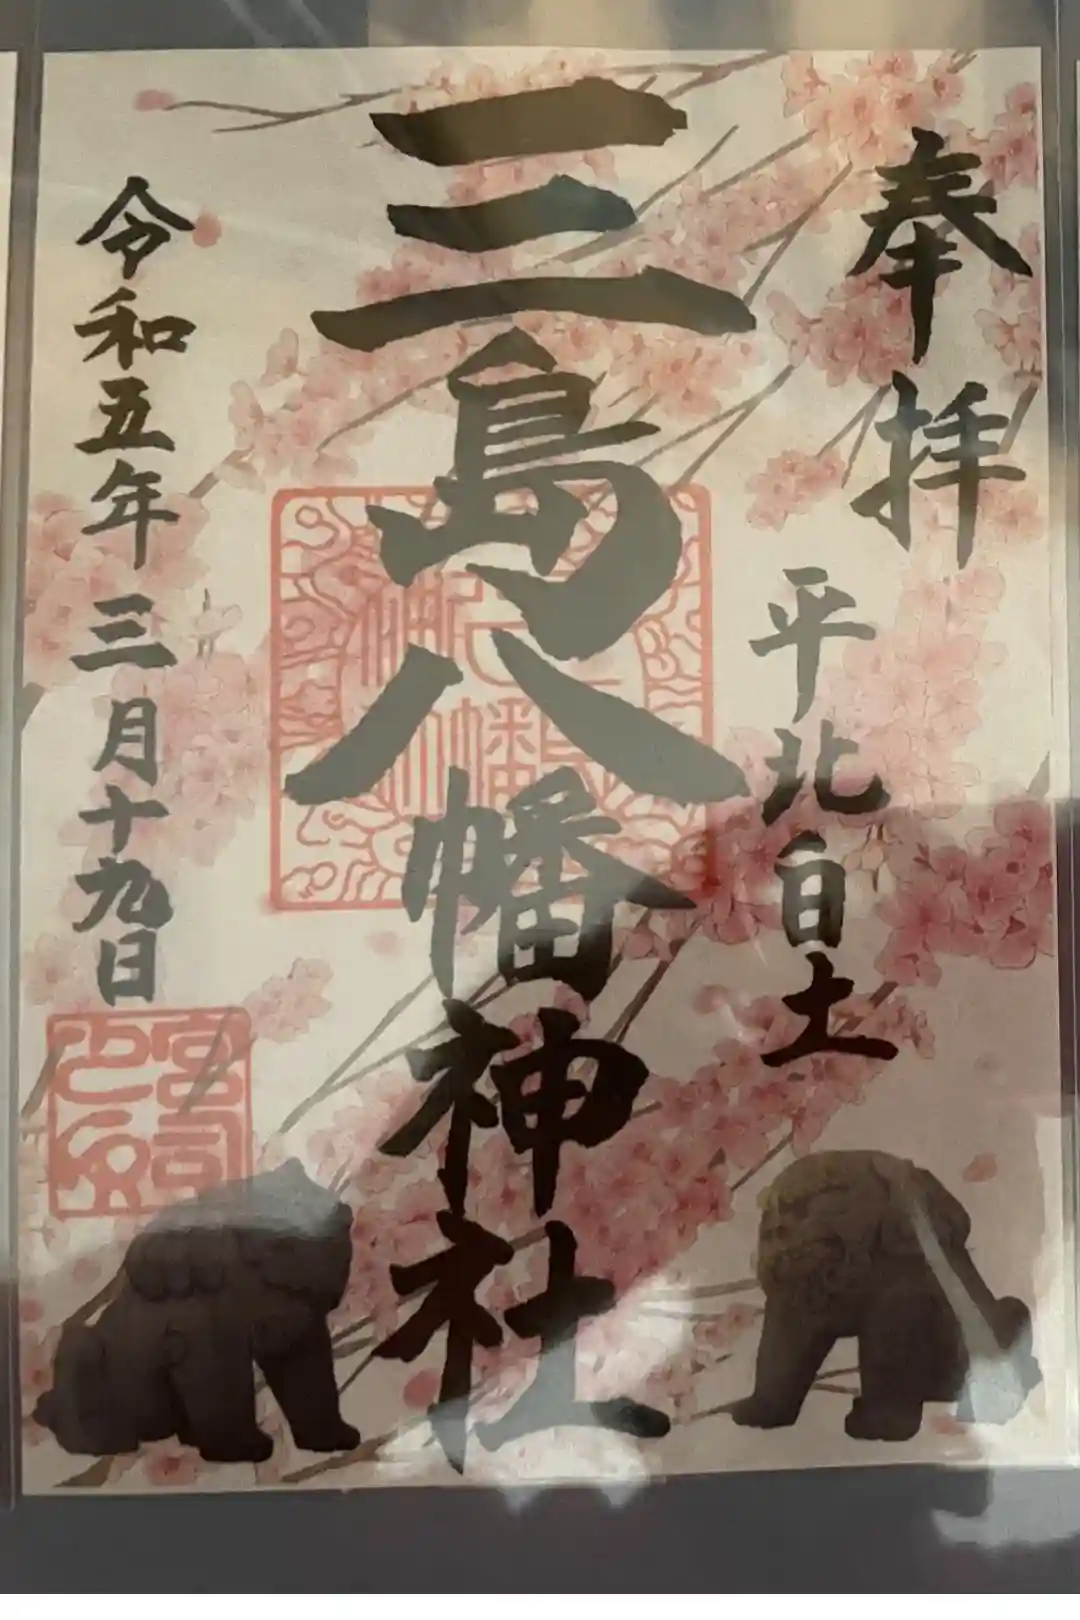 奉拝
平北白土
三島八幡神社
令和五年三月十九日
宮司之印